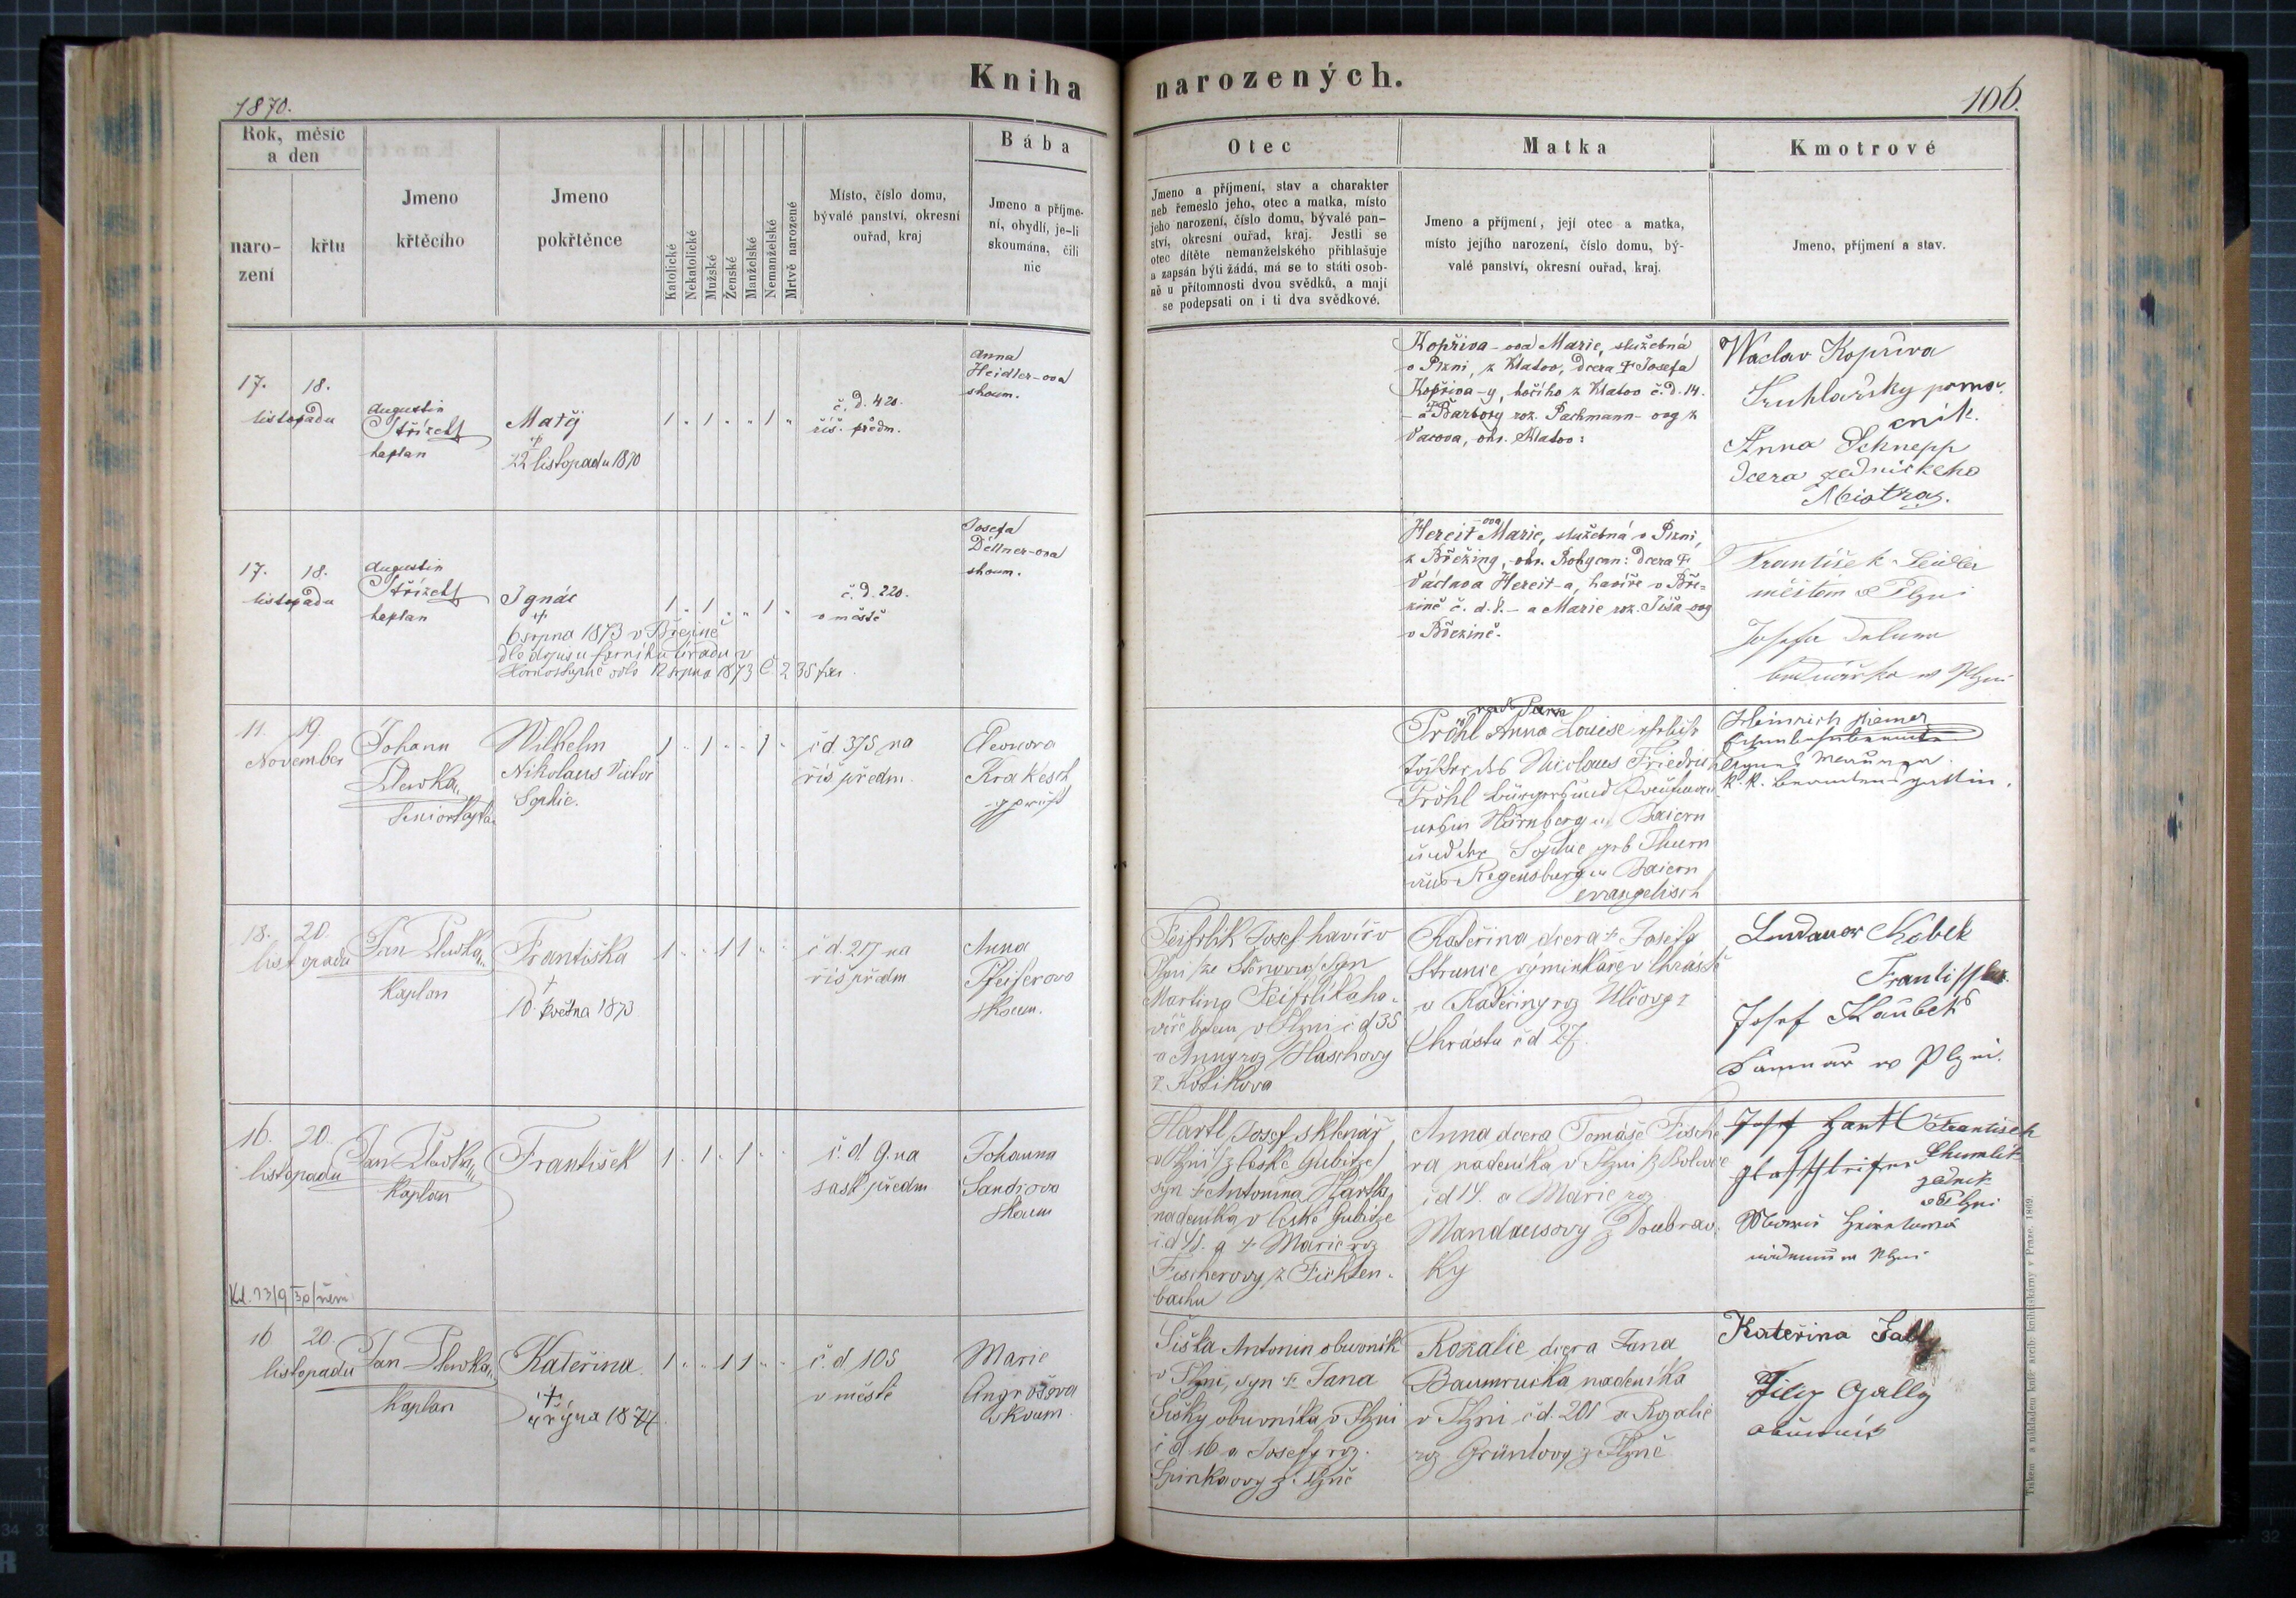 Kniha narozených.
1870.
106.
Rok, měsíc
a den
naro-
zení
křtu
Jmeno
křtěcího
Jmeno
pokřtěnce
Katolické
Nekatolické
Mužské
Ženské
Manželské
Nemanželské
Mrtvě narozené
Místo, číslo domu,
bývalé panství, okresní
ouřad, kraj
Bába
Jmeno a příjme-
ní, obydlí, je-li
skoumána, čili
nic
Otec
Jmeno a příjmení, stav a charakter
neb řemeslo jeho, otec a matka, místo
jeho narození, číslo domu, bývalé pan-
ství, okresní ouřad, kraj. Jestli se
otec dítěte nemanželského přihlašuje
a zapsán býti žádá, má se to státi osob-
ně u přítomnosti dvou svědků, a mají
se podepsati on i ti dva svědkové.
Matka
Jmeno a příjmení, její otec a matka,
místo jejího narození, číslo domu, bý-
valé panství, okresní ouřad, kraj.
Kmotrové
Jmeno, příjmení a stav.
17. 18.
listopadu
Augustin
Střízek
kaplan
Matěj
†
22 listopadu 1870
1 " 1 " " 1 "
č. d. 420.
říš. předm.
Anna
Heidler-ova
skoum.
Kopřiva-ova Marie, služebná
v Plzni, z Klatov, dcera † Josefa
Kopřiva-y, kočího z Klatov č. d. 14.
- a † Barbory roz. Pachmann-ovy z
Vacova, okr. Klatov:
Waclav Kopřiva
Truhlařsky pomo-
cnik.
Anna Schnepp
dcera zednickeho
Mistra.
17. 18.
listopadu
Augustin
Střízek
kaplan
Ignác
†
6 srpna 1873 v Březině
dle
12 srpna 1873 Č 235
1 " 1 " " 1 "
č. d. 220.
v městě
Josefa
Döllner-ova
skoum.
Hereit-ova Marie, služebná v Plzni,
z Březiny, okr. Rokycan: dcera †
Václava Hereit-a, havíře v Bře-
zině č. d. 8. - a Marie roz. Tiša-ovy
v Březině.
František Seidler
měštěnin v Plzni
Josefa
v Plzni
11. 19.
November
Johann
Slewka
Seniorkaplan
Wilhelm
Nikolaus Victor
Sophie.
1 " 1 " " 1 "
č d. 375 na
říš předm.
Eleonora
Krakesch
geprüft
Pröhl Anna Louise eheliche
Tochter des Nicolaus Friedrich
Pröhl Bürgers und Kaufmann
in Baiern
und der Sophie geb Thurn
aus Regensburg in Baiern
evangelisch
Heinrich
Agnes
k. k. Beamtensgattin.
18. 20.
listopadu
Jan Slewka
Kaplan
Františka
†
10. května 1873
1 " " 1 1 " "
č d. 217 na
říš předm
Anna
Pfeiferova
skoum.
Feifrlík Josef havíř v
Plzni syn
Martina Feifrlíka ha-
víře v Plzni č d 35
a Anny roz Haschovy
z Kotíkova
Kateřina dcera † Josefa
Strunce výminkáře v Chrástě
a Kateřiny roz Ulčovy z
Chrástu č d 27.
Kobek
Josef Kaubek
w Plzni.
16. 20.
listopadu
Jan Slewka
Kaplan
František
1 " 1 " 1 " "
č. d 9. na
sask předm
Johanna
Sandrova
skoum
Kř. 13/9 30/něm
Hartl Josef sklenář
v Plzni z české Kubice
syn † Antonína Hartla,
nadeníka v české Kubice
č. d 41. a † Marie roz
Fischerovy z Fichten-
bachu
Anna dcera Tomáše Fische
ra nadeníka v Plzni z
č d 14. a Marie roz
Mandausovy z Doubrav-
ky
Josef Hartl František
Chumlik
zednik
v Plzni
16 20.
listopadu
Jan Slewka
Kaplan
Kateřina
†
října 1874
1 " " 1 1 " "
č. d 105
v městě
Marie
Angrošova
skoum
Šiška Antonin obuvník
v Plzni, syn † Jana
Šišky obuvníka v Plzni
č d 16 a Josefy roz.
Špinkaovy z Plzně
Rozalie dcera Jana
Baumrucka nadeníka
v Plzni č d. 201 a Rozalie
roz. Grüntovy z Plzně
Kateřina Gally
Filip Gally
obuwnik
Tiskem a nákladem kníž. arcib. knihtiskárny v Praze. 1869.